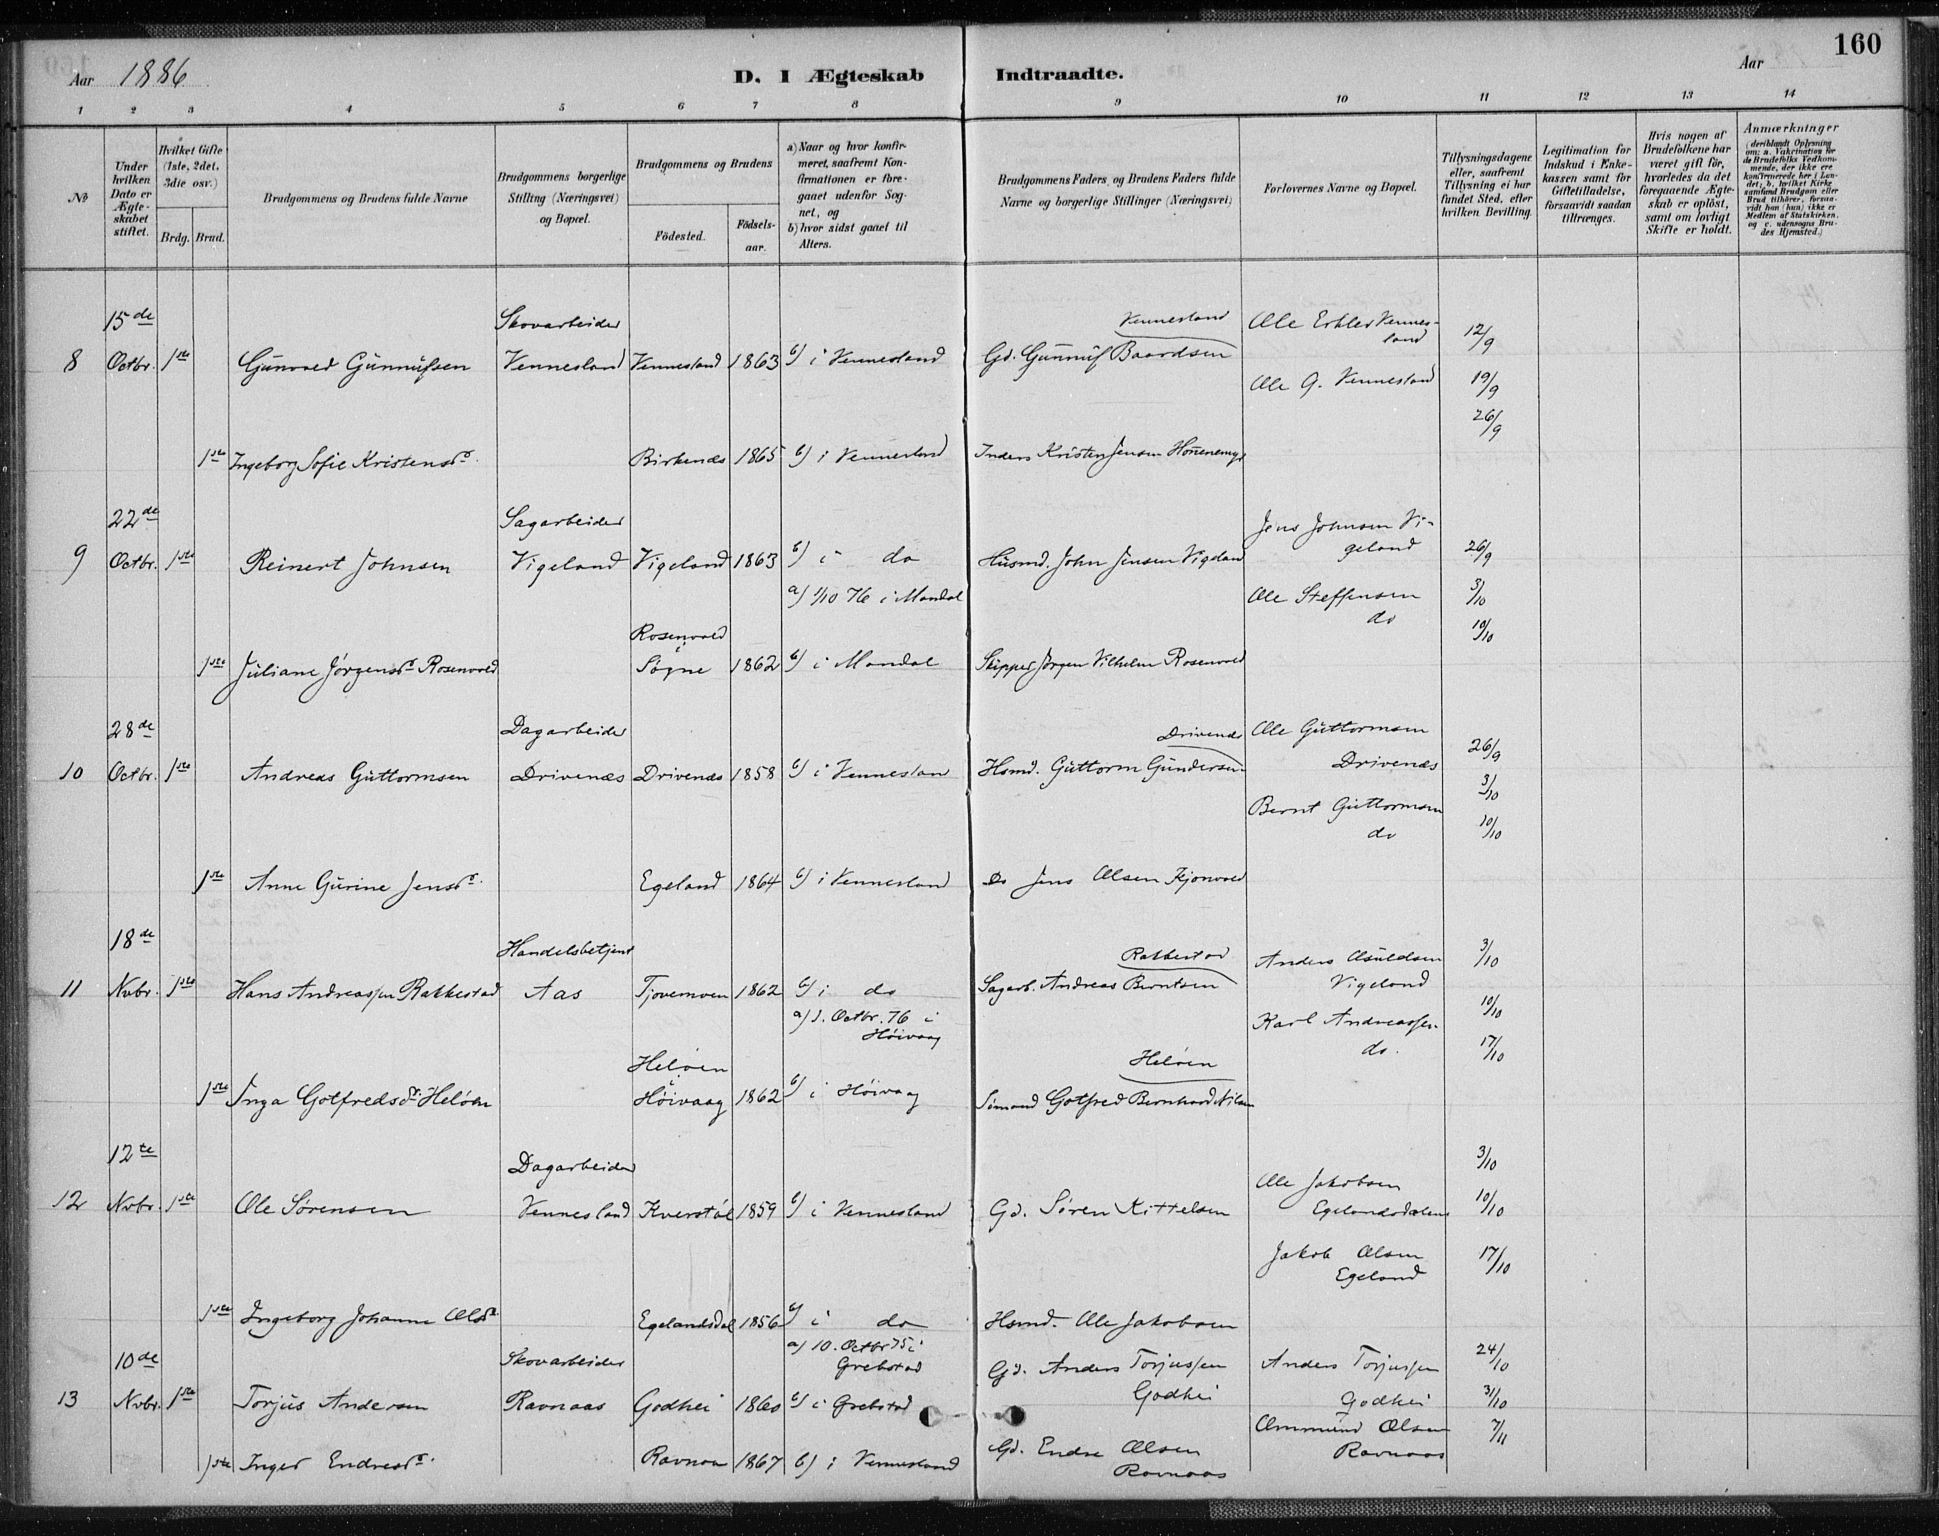 160
Aar 1886
D. I Ægteskab Indtraadte.
Aar
1 2 3 4 5 6 7 8 9 10 11 12 13 14
No
Under hvilken Dato er Ægteskabet stiftet.
Hvilket Gifte (1ste, 2det, 3die osv.)
Brdg. Brud.
Brudgommens og Brudens fulde Navne
Brudgommens borgerlige Stilling (Næringsvei) og Bopæl.
Brudgommens og Brudens
Fødested. Fødselsaar.
a) Naar og hvor konfirmeret, saafremt Konfirmationen er foregaaet udenfor Sognet, og
b) hvor sidst gaaet til Alters.
Brudgommens Faders, og Brudens Faders fulde Navne og borgerlige Stillinger (Næringsvei)
Forlovernes Navne og Bopæl.
Tillysningsdagene eller, saafremt Tillysning ei har fundet Sted, efter hvilken Bevilling.
Legitimation for Indskud i Enkekassen samt for Giftetilladelse, forsaavidt saadan tiltrænges.
Hvis nogen af Brudefolkene har været gift før, hvorledes da det foregaaende Ægteskab er opløst, samt om lovligt Skifte er holdt.
Anmærkninger (deriblandt Oplysning om: a. Vakcination for de Brudefolks Vedkommende, der ikke ere konfirmerede her i Landet; b. hvilket Kirkesamfund Brudgom eller Brud tilhører, forsaavidt han (hun) ikke er Medlem af Statskirken, og c. udensogns Brudes Hjemsted.)
15de Skovarbeider Vennesland Ole Erklev Vennesland 12/9
8 Octbr. 1ste Gunvald Gunnufsen Vennesland Vennesland 1863 b) i Vennesland Gd. Gunnuf Baardsen
Ole G. Vennesland 19/9
26/9
1ste Ingeborg Sofie Kristensd. Birkenæs 1865 b) i Vennesland Inders Kristen Jensen
22de Sagarbeider Jens Johnsen Vigeland 26/9
9 Octbr. 1ste Reinert Johnsen Vigeland Vigeland 1863 b) i do Husmd. John Jensen Vigeland
a) 1/10 76 i Mandal Ole Steffensen do 3/10
Rosenvold 10/10
1ste Juliane Jørgensd. Rosenvold i Søgne 1862 b) i Mandal Skipper Jørgen Vilhelm Rosenvold
28de Dagarbeider Drivenæs Ole Guttormsen Drivenæs 26/9
10 Octbr. 1ste Andreas Guttormsen Drivenæs Drivenæs 1858 b) i Vennesland Hsmd. Guttorm Gundersen
3/10
Bernt Guttormsen do 10/10
1ste Anne Gurine Jensd. Egeland 1864 b) i Vennesland Do Jens Olsen Kjonvold
18de Handelsbetjent Rakkestad Anders Osuldsen Vigeland 3/10
11 Nvbr. 1ste Hans Andreassen Rakkestad Aas Tjovemoen 1862 b) i do Sagarb. Andreas Berntsen
a) 1. Octbr. 76 i Høivaag Karl Andreassen do. 10/10
Heløen Heløen 17/10
1ste Inga Gotfredsd. Heløen i Høivaag 1862 b) i Høivaag Sømand Gotfred Bernhard Nilsen
12te Dagarbeider 3/10
12 Nvbr. 1ste Ole Sørensen Vennesland Kverstøl 1859 b) i Vennesland Gd. Søren Kittelsen Ole Jakobsen Egelandsdalen 10/10
Jakob Olsen Egeland 17/10
1ste Ingeborg Johanne Olsd. Egelandsdal 1856 b) i do Hsmd. Ole Jakobsen
10de Skovarbeider a) 10. Octbr 75 i Grebstad Gd. Anders Torjussen Godhei Anders Torjussen Godhei 24/10
13 Nvbr. 1ste Torjus Andersen Ravnaas Godhei 1860 b) i Grebstad 31/10
Ommund Olsen Ravnaas 7/11
1ste Inger Endresd. Ravnaa 1867 b) i Vennesland Gd. Endre Olsen Ravnaas